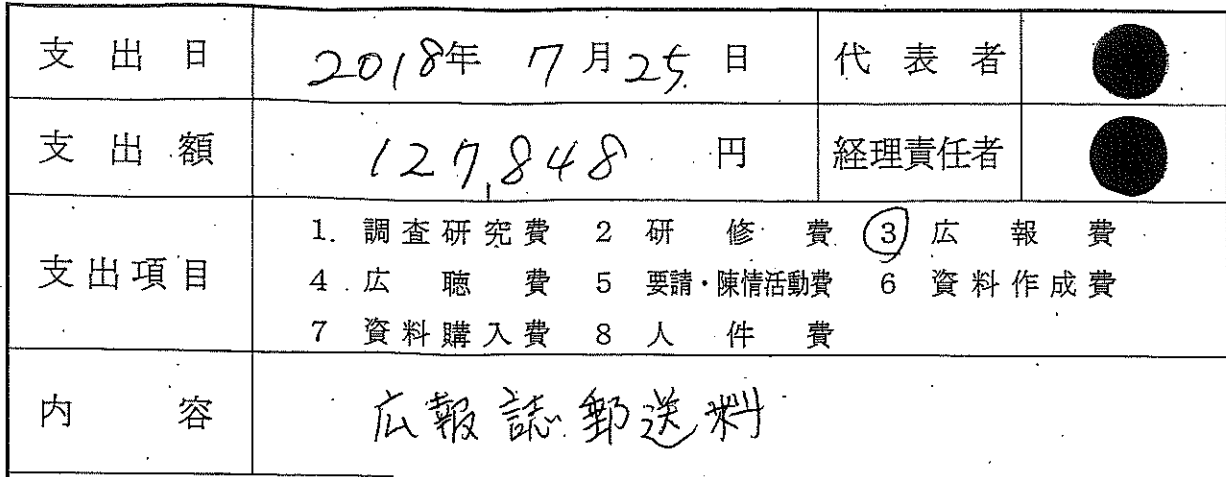 支出日 2018年 7月25日 代表者
支出額 127,848 円 経理責任者
支出項目 1. 調査研究費 2 研修費 3 広報費
4. 広聴費 5 要請・陳情活動費 6 資料作成費
7 資料購入費 8 人件費
内容 広報誌郵送料